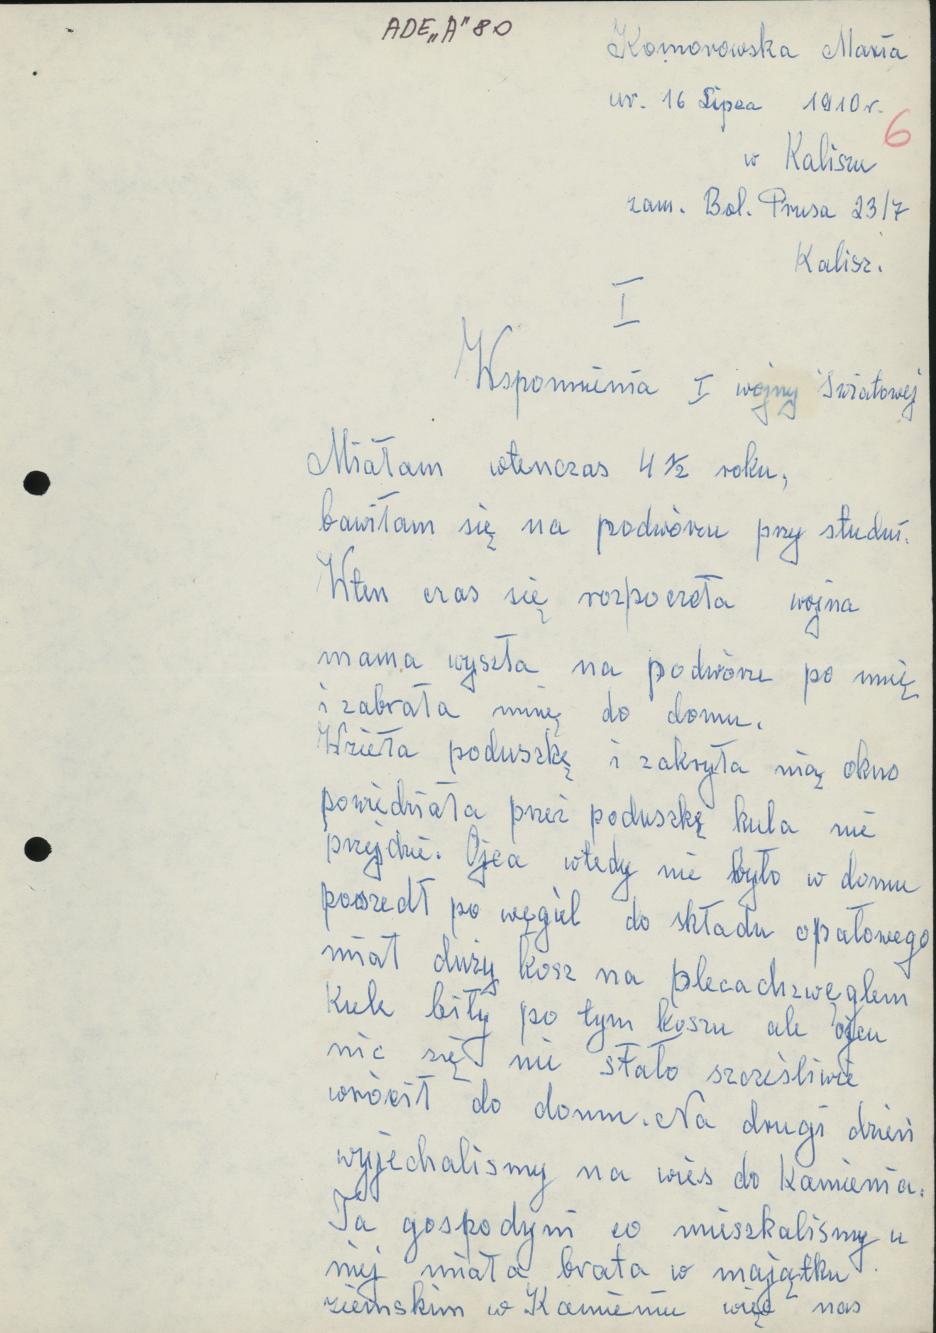 ADE„A" 80
Komorowska Maria
ur. 16 Lipca 1910 r.
6
w Kaliszu
zam. Bol. Prusa 23/7
Kalisz.
I
Wspomnienia I wojny Światowej
Miałam wtenczas 4 1/2 roku,
bawiłam się na podwórzu przy studni.
Wten czas się rozpoczeła wojna
mama wyszła na podwórze po mnię
i zabrała mnię do domu.
Wzieła poduszkę i zakryła nią okno
powiedziała przez poduszkę kula nie
przejdzie. Ojca wtedy nie było w domu
poszedł po węgiel do składu opałowego
miał duży kosz na plecach z węglem
Kule biły po tym koszu ale ojcu
nic się nie stało szcześliwie
wrócił do domu. Na drugi dzień
wyjechalismy na wieś do Kamienia.
Ta gospodyni co mieszkalismy u
niej miała brata w majątku
ziemskim w Kamieniu więc nas